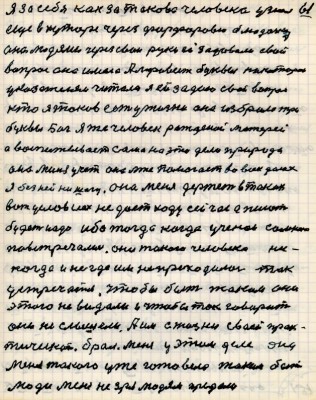 я за себя как за такого человека узнал 61
еще в хуторе через фарфоровое блюдечко
она людям через свои руки ей задавала свой
вопрос она имела Алфавит буквы на которые
указателям читала я ей задаю свой вопрос
кто я таков есть у жизни она избрала три
буквы Бог я же человек рожденой матерей
а воспитывает сама на это дело природа
она меня учит она мне помогает во всех делах
я без ней ни шагу, она меня держит в таких
вот условиях не дает ходу сейчас а писать
будет надо ибо тогда когда ученая со мною
повстречалися. они такого человека ни-
когда и негде им не приходилось так
устречать, чтобы быть таким они
этого не видали и чтобы так говорить
они не слышали, А им с жизни своей прак-
тической. брал. меня у этим деле
меня такого уже готового таким быть
люди меня не зря людям придали